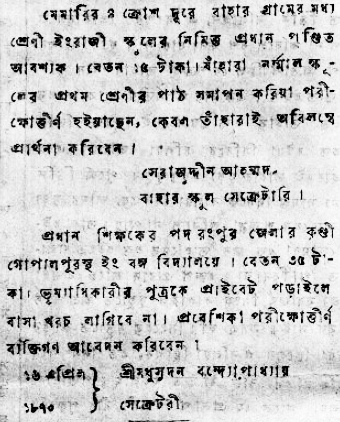 মেমারির ৪ ক্রোশ দূরে বাহার গ্রামের মধ্য
শ্রেণী ইংরাজী স্কুলের নিমিত্ত প্রধান পণ্ডিত
আবশ্যক। বেতন ১৫ টাকা। যাঁহারা নর্ম্মাল স্কু-
লের প্রথম শ্রেণীর পাঠ সমাপন করিয়া পরী-
ক্ষোত্তীর্ণ হইয়াছেন, কেবল তাঁহারাই অবিলম্বে
প্রার্থনা করিবেন।
সেরাজুদ্দীন আহম্মদ-
বাহার স্কুল সেক্রেটারি।
প্রধান শিক্ষকের পদ রংপুর জেলার কুণ্ডী
গোপালপুরস্থ ইং বঙ্গ বিদ্যালয়ে। বেতন ৩৫ টা-
কা। ভূম্যধিকারীর পুত্রকে প্রাইবেট পড়াইলে
বাসা খরচ লাগিবে না। প্রবেশিকা পরীক্ষোত্তীর্ণ
ব্যক্তিগণ আবেদন করিবেন।
১৬ এপ্রিল } শ্রীমধুসূদন বন্দ্যোপাধ্যায়
১৮৭০ } সেক্রেটরী